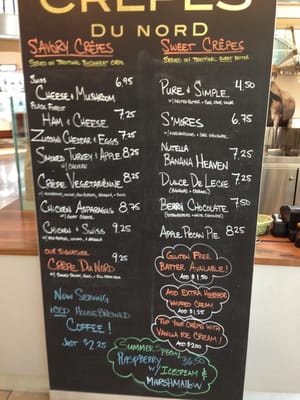 CRÊPES
DU NORD
SAVORY CRÊPES
SERVED ON TRADITIONAL BUCKWHEAT CRÊPE
SWISS
CHEESE & MUSHROOM 6.95
BLACK FOREST
HAM & CHEESE 7.25
CHEDDAR & EGGS 7.25
SMOKED TURKEY & APPLE 8.25
CRÊPE VEGETARIENNE 8.25
CHICKEN ASPARAGUS 8.75
W/ GOAT CHEESE
CHICKEN & SWISS 9.25
OUR SIGNATURE 9.25
CRÊPE DU NORD
NOW SERVING
ICED HOUSE BREWED
COFFEE!
JUST $2.25
SWEET CRÊPES
SERVED ON TRADITIONAL SWEET BATTER
PURE & SIMPLE 4.50
S'MORES 6.75
NUTELLA
BANANA HEAVEN 7.25
DULCE DE LECHE 7.25
BERRY CHOCOLATE 7.50
APPLE PECAN PIE 8.25
GLUTEN FREE
BATTER AVAILABLE!
ADD $1.50
ADD EXTRA HOMEMADE
WHIPPED CREAM
$1.25
TOP YOUR CRÊPE WITH
VANILLA ICE CREAM!
ADD $2.00
SUMMER SPECIAL
RASPBERRY
W/ ICECREAM &
MARSHMALLOW